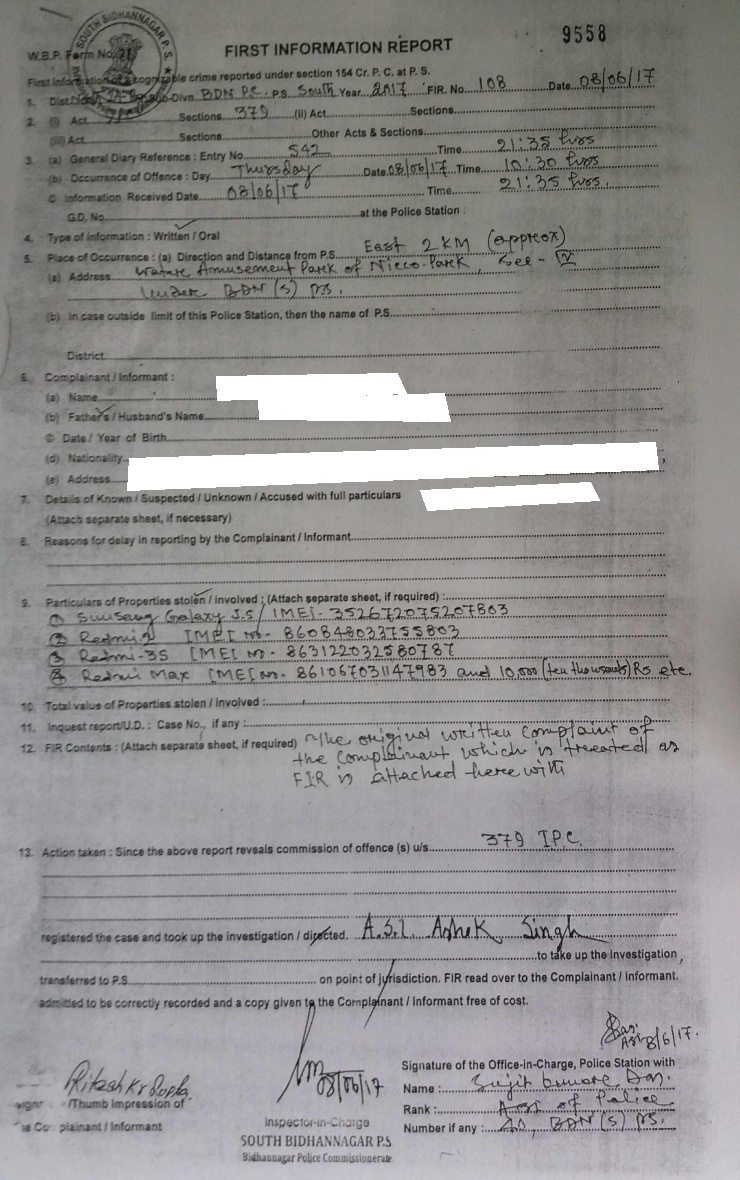 SOUTH BIDHANNAGAR P.S.
9558
W.B.P. Form No.
FIRST INFORMATION REPORT
First Information of a cognizable crime reported under section 154 Cr. P. C. at P. S.
1. Dist. Sub-Divn. BDN P.C. P.S. South Year 2017 FIR. No. 108 Date 08/06/17
2. (i) Act Sections 379 (ii) Act Sections
(iii) Act Sections Other Acts & Sections
3. (a) General Diary Reference : Entry No. 542 Time 21:35 hrs
(b) Occurrence of Offence : Day Thursday Date 08/06/17 Time 10:30 hrs
© Information Received Date 08/06/17 Time 21:35 hrs.
G.D. No. at the Police Station :
4. Type of information : Written / Oral
5. Place of Occurrence : (a) Direction and Distance from P.S. East 2 KM (approx)
(a) Address Water Amusement Park of Nicco-Park, Sec - IV
Under BDN (S) PS.
(b) In case outside limit of this Police Station, then the name of P.S.
District
6. Complainant / Informant :
(a) Name
(b) Father's / Husband's Name
© Date / Year of Birth
(d) Nationality
(e) Address
7. Details of Known / Suspected / Unknown / Accused with full particulars
(Attach separate sheet, if necessary)
8. Reasons for delay in reporting by the Complainant / Informant
9. Particulars of Properties stolen / involved : (Attach separate sheet, if required) :
① Sumsung Galaxy J.5 / IMEI- 352672075207803
② Redmi-2 IMEI No - 860848033755803
③ Redmi-3S IMEI No - 863122032580787
④ Redmi Max IMEI No - 861067031147983 and 10,000 (ten thousands) Rs etc.
10. Total value of Properties stolen / involved :
11. Inquest report/U.D. : Case No., if any :
12. FIR Contents : (Attach separate sheet, if required) The original written complaint of
the complainant which is treeated as
FIR is attached here with
13. Action taken : Since the above report reveals commission of offence (s) u/s. 379 I.P.C.
registered the case and took up the investigation / directed. A.S.I. Ashok Singh
to take up the investigation,
transferred to P.S. on point of jurisdiction. FIR read over to the Complainant / Informant.
admitted to be correctly recorded and a copy given to the Complainant / Informant free of cost.
ASI 8/6/17.
Signature of the Office-in-Charge, Police Station with
Ritesh Kr Gupta
08/06/17
Name : Sujit kumar Das.
/Thumb Impression of
Rank : ASI of Police
Complainant / Informant
Inspector-in-Charge
Number if any : BDN (S) PS.
SOUTH BIDHANNAGAR P.S
Bidhannagar Police Commissionerate